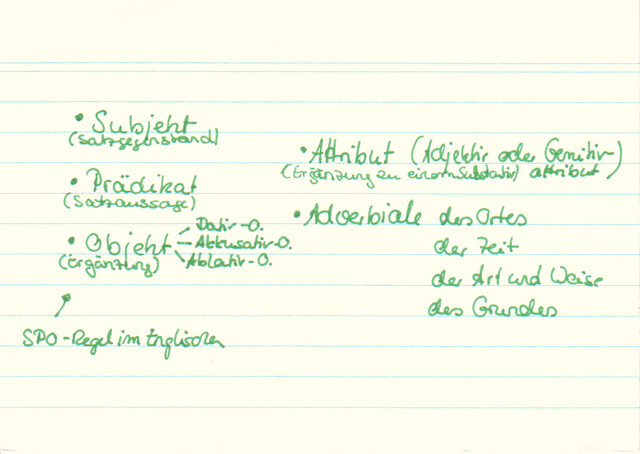 • Subjekt
(Satzgegenstand)
• Prädikat
(Satzaussage)
• Objekt – Dativ-O.
– Akkusativ-O.
– Ablativ-O.
(Ergänzung)
SPO-Regel im Englischen
• Attribut (Adjektiv oder Genitiv-)
(Ergänzung zu einem Substativ) attribut
• Adverbiale des Ortes
der Zeit
der Art und Weise
des Grundes